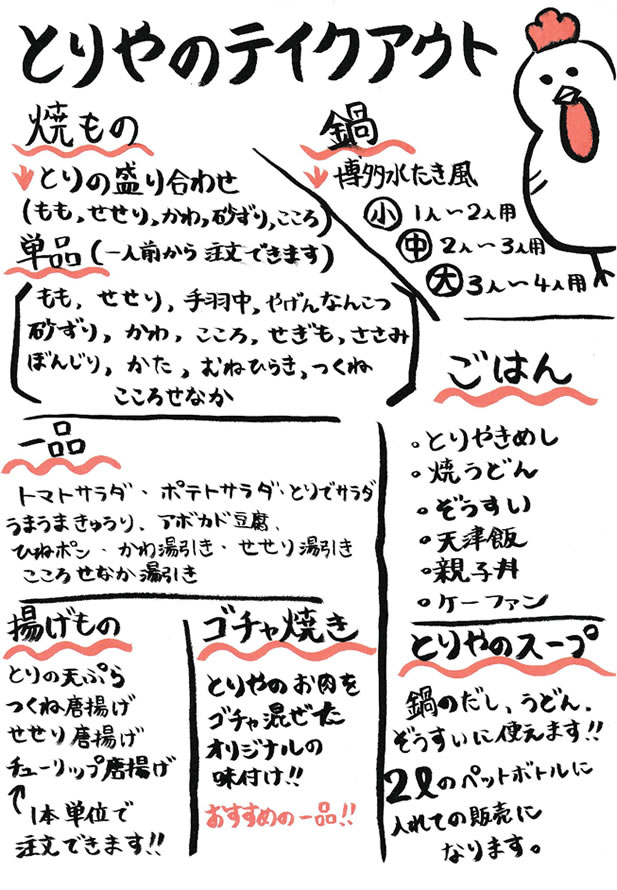 とりやのテイクアウト
焼もの
とりの盛り合わせ
(もも,せせり,かわ,砂ずり,こころ)
単品(一人前から注文できます)
もも,せせり,手羽中,やげんなんこつ
砂ずり,かわ,こころ,せぎも,ささみ
ぼんじり,かた,むねひらき,つくね
こころせなか
鍋
博多水たき風
小 1人〜2人用
中 2人〜3人用
大 3人〜4人用
一品
トマトサラダ・ポテトサラダ・とりでサラダ
うまうまきゅうり、アボカド豆腐、
ひねポン・かわ湯引き・せせり湯引き
こころせなか湯引き
ごはん
・とりやきめし
・焼うどん
・ぞうすい
・天津飯
・親子丼
・ケーファン
揚げもの
とりの天ぷら
つくね唐揚げ
せせり唐揚げ
チューリップ唐揚げ
↑1本単位で
注文できます!!
ゴチャ焼き
とりやのお肉を
ゴチャ混ぜた
オリジナルの
味付け!!
おすすめの一品!!
とりやのスープ
鍋のだし、うどん、
ぞうすいに使えます!!
2lのペットボトルに
入れての販売に
なります。